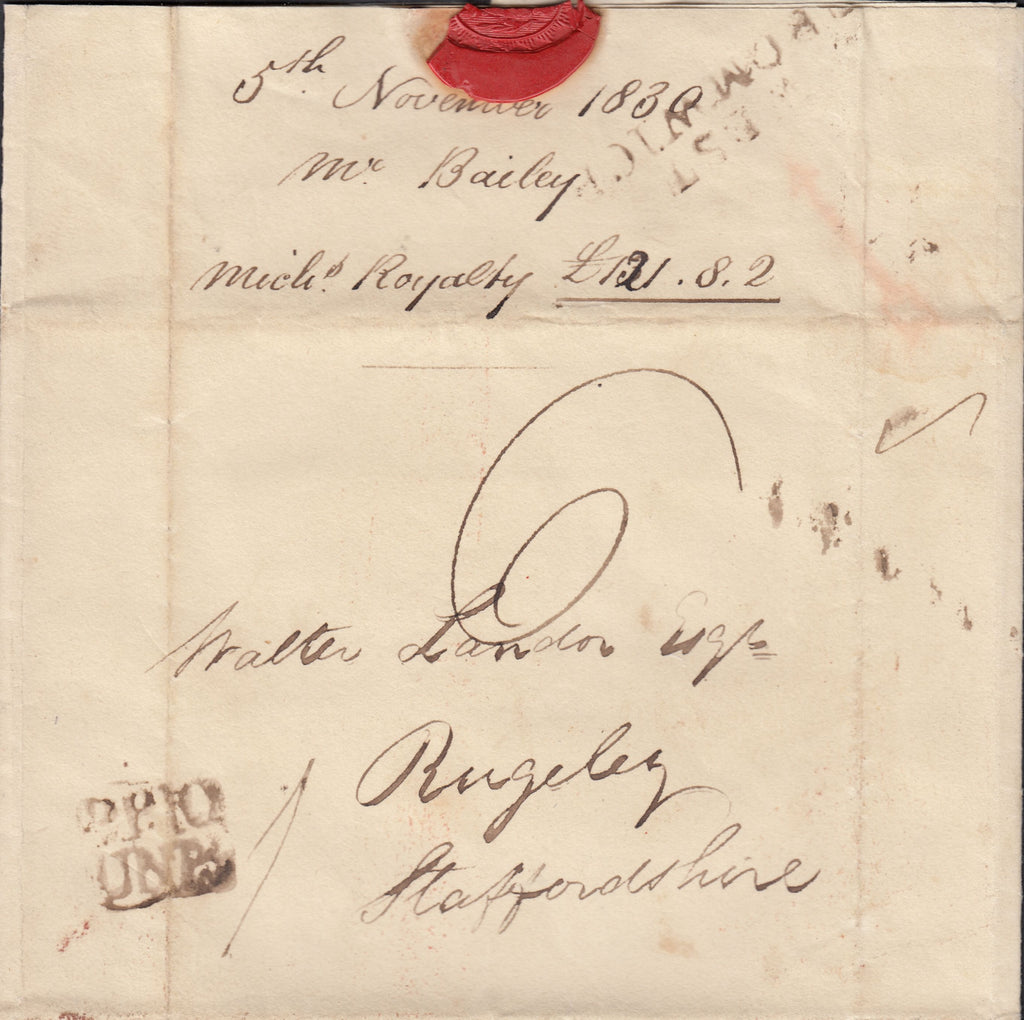 5th November 1830
Mr Bailey
Michs Royalty £131.8.2
6
Walter Landor Esqr
Rugeley
Staffordshire
1
BROMWICH
WEST